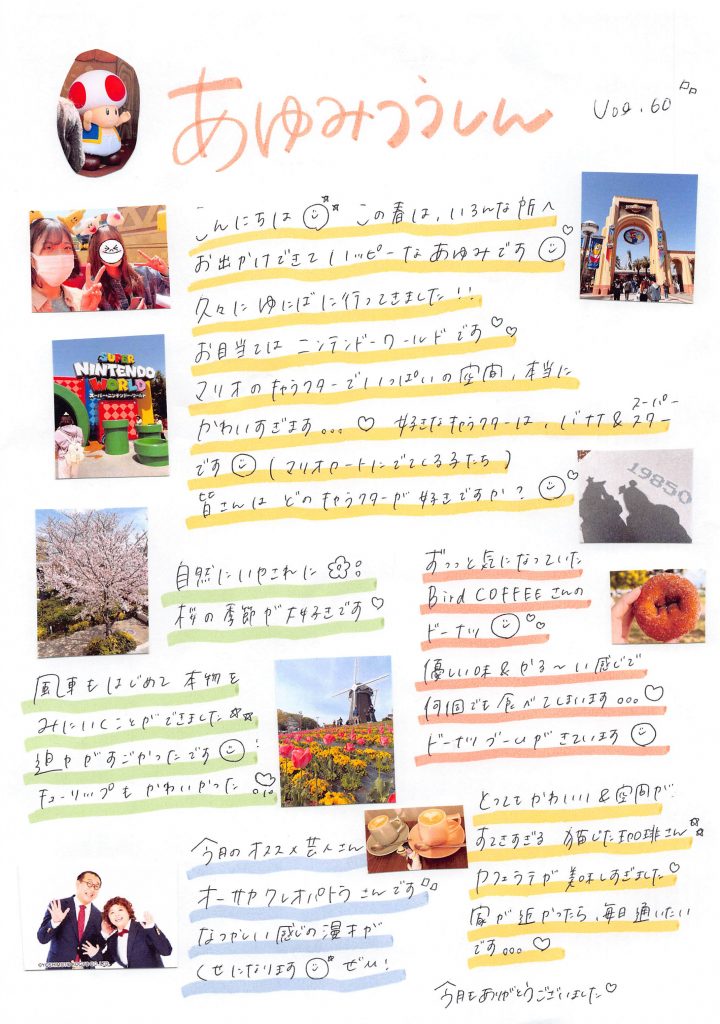 あゆみつうしん
Vol.60
こんにちは この春は、いろんな所へ
お出かけできてハッピーなあゆみです
久々にゆにばに行ってきました!!
お目当ては ニンテンドーワールドです
マリオのキャラクターでいっぱいの空間、本当に
かわいすぎます。。。 好きなキャラクターは、バナナ&スター
スーパー
です (マリオカートにでてくる子たち)
皆さんは どのキャラクターが好きですか?
SUPER
NINTENDO
WORLD
スーパー・ニンテンドー・ワールド
19850
自然にいやされに
桜の季節が大好きです
ずっっと気になっていた
Bird COFFEEさんの
ドーナツ
優しい味&かる〜い感じで
何個でも食べてしまいます。。。
ドーナツブームがきています
風車もはじめて本物を
みにいくことができました
迫力がすごかったです!
チューリップもかわいかった
とってもかわいい&空間が
すてきすぎる 猫じた珈琲さん
カフェラテが美味しすぎました
家が近かったら、毎日通いたい
です。。。
今月のオススメ芸人さん
オーサカクレオパトラさんです
なつかしい感じの漫才が
くせになります ぜひ!
©YOSHIMOTO KOGYO CO.,LTD.
今月もありがとうございました